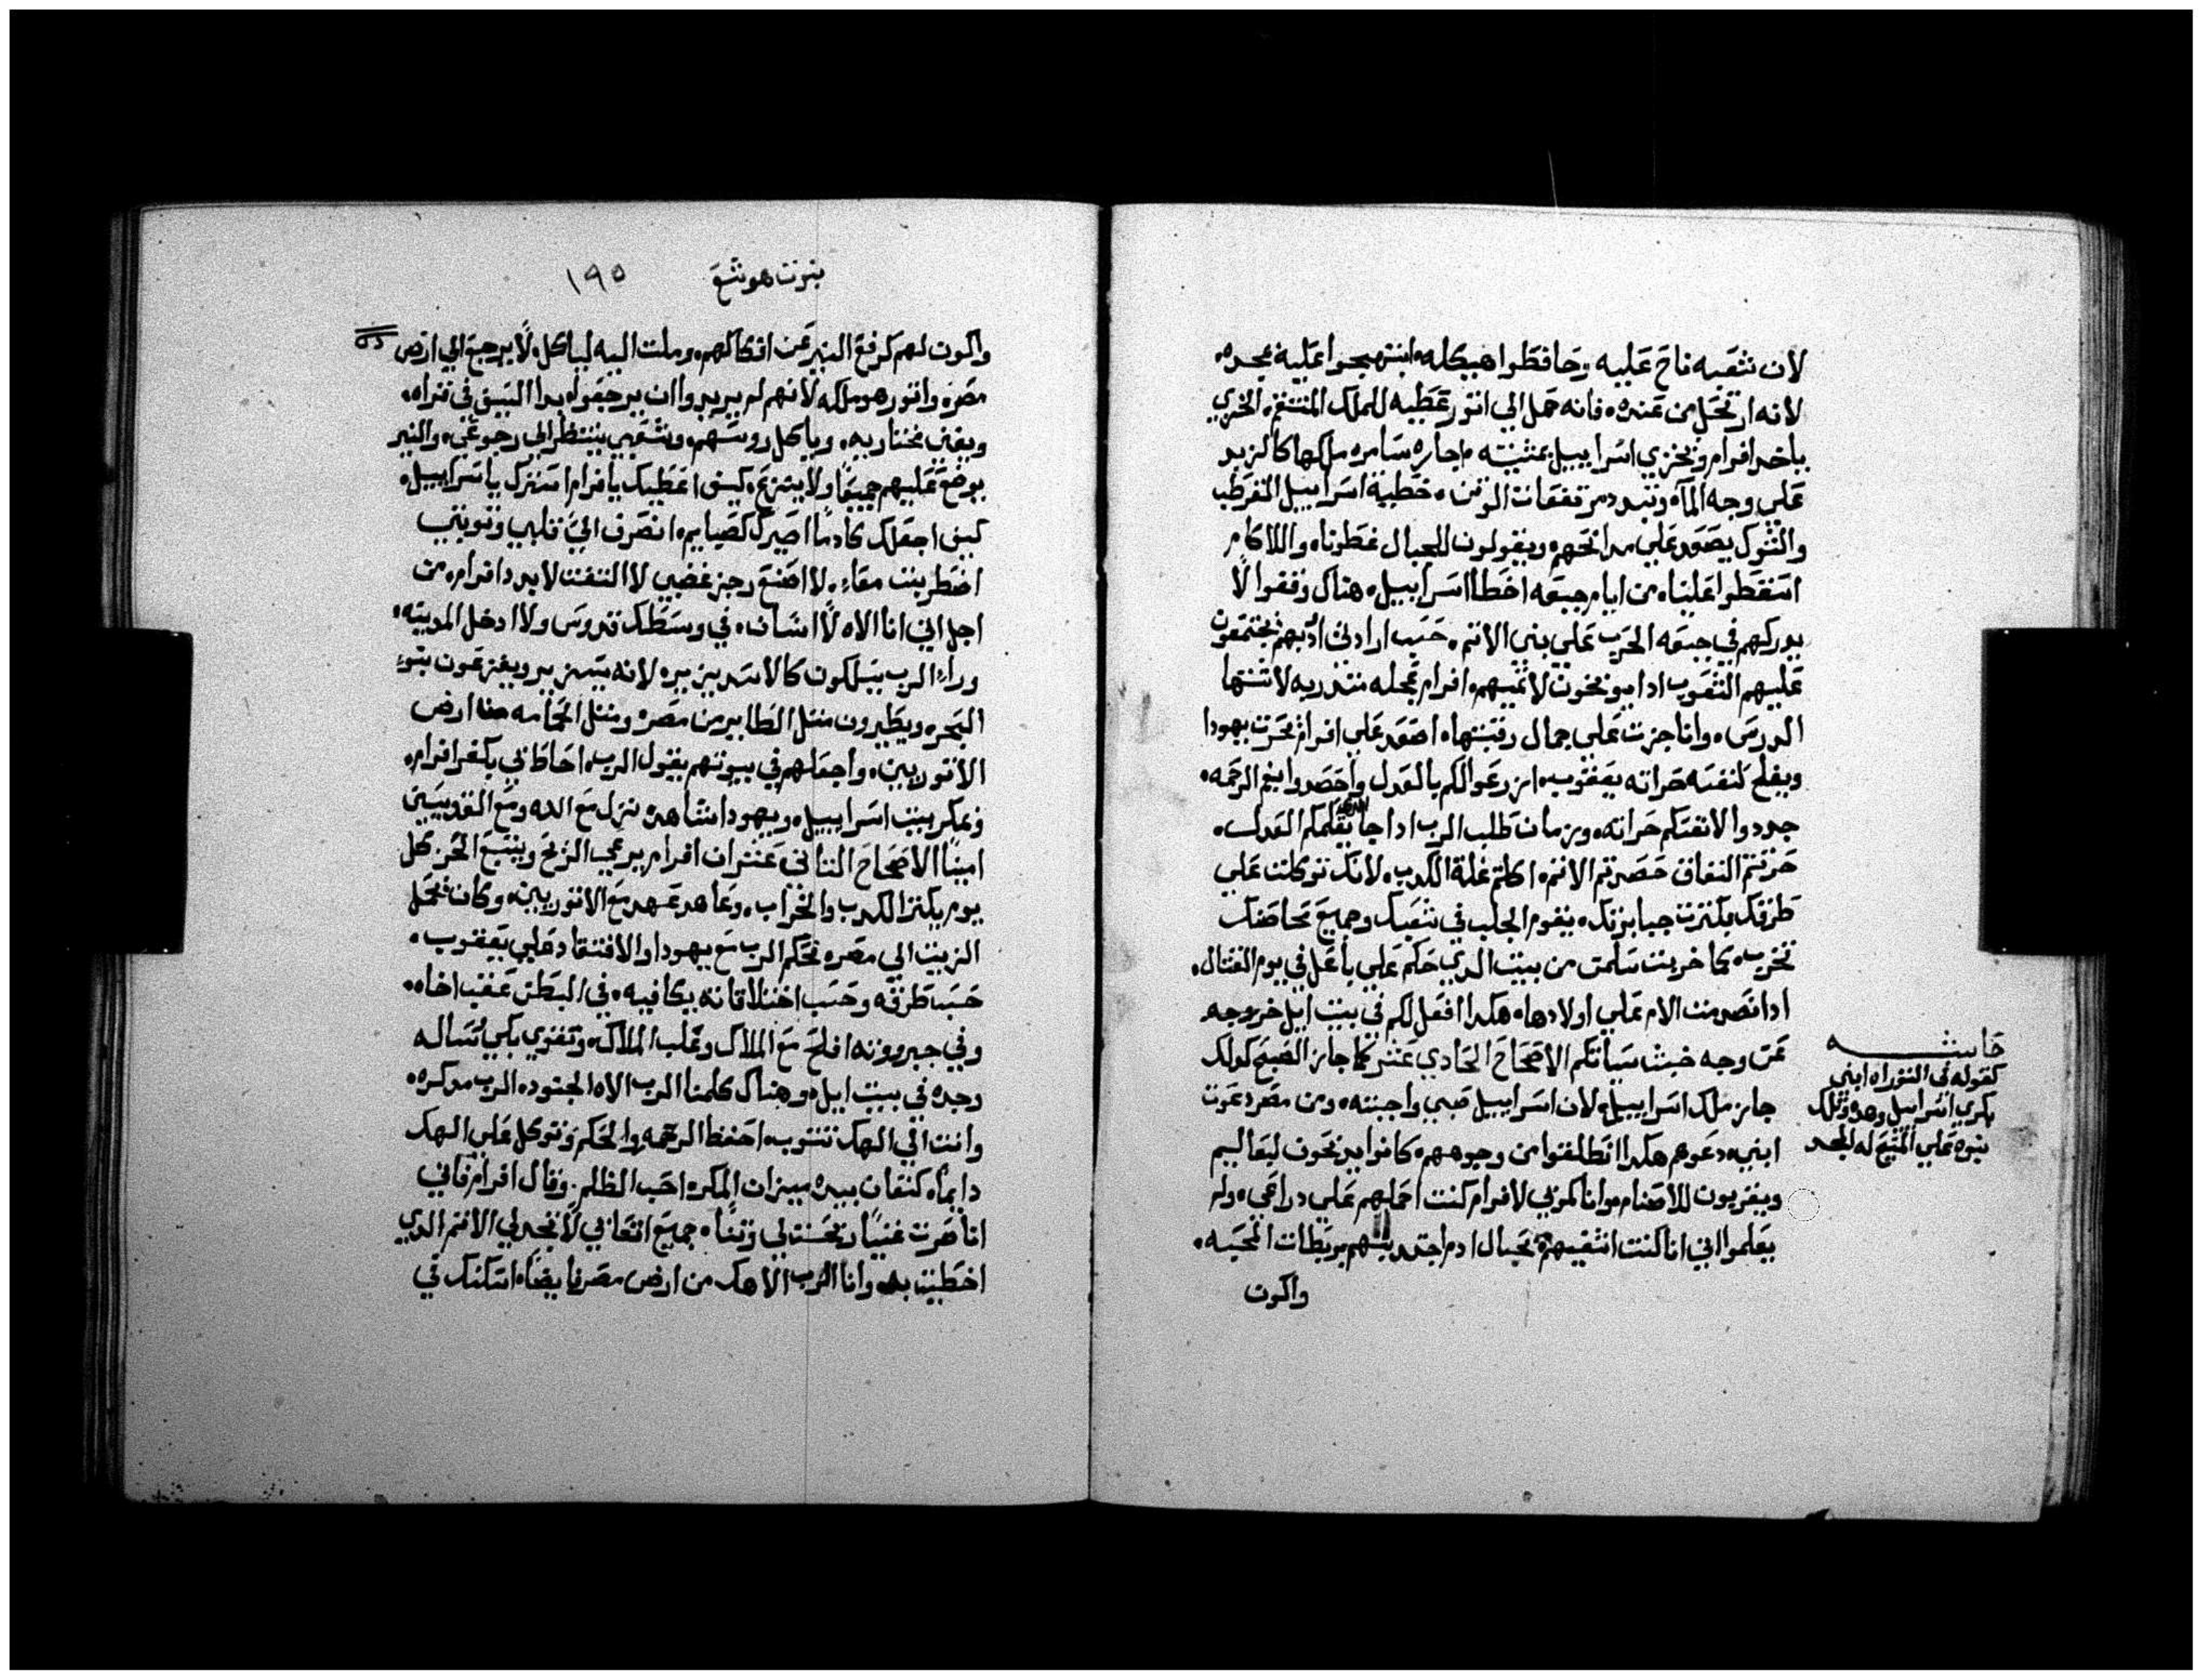 لان شعبه ناح عليه وحافظوا هيكله ابتهجوا عليه بمجده
لانه ارتحل من عنده فانه حمل الي اتور عطيه للملك المنتقم الخزي
ياخد افرام ويخزي اسراييل بمشيته اجازه سامره ملكها كالزبد
علي وجه الماه وتبد مرتفعات الوتن خطية اسراييل القرطب
والشوك يصعد علي مدابحهم ويقولون للجبال غطونا وللاكام
اسقطوا علينا من ايام جبعه اخطا اسراييل هناك وقفوا لا
يدركهم في جبعه الحرب علي بني الاتم حسب ارادتي ادبهم يجتمعون
عليهم الشعوب ادا يوبخون لاتميهم افرام عجله متدربه لاشتها
الدرس وانا جزت علي جمال رقبتها اصعد علي افرام تحرت يهودا
ويفلح لنفسه حراته يعقوب ازرعوا لكم بالعدل واحصدوا بفم الرحمه
جددوا لانفسكم حراته وزمان طلب الرب ادا جا يعلمكم العدل
حرتتم النفاق حصدتم الاتم اكلتم غلة الكدب لانك توكلت علي
طرقك بكترت جبابرتك يقوم الجلب في شعبك وجميع محاصنك
تخرب كما خربت سلمن من بيت الدي حكم علي باعل في يوم القتال
ادا نصدمت الام علي اولادها هكدا افعل لكم في بيت ايل خروجه
عن وجه خبث سياتكم الاصحاح الحادي عشر كما جاز الصبح كدلك
جاز ملك اسراييل لان اسراييل صبي واحببته ومن مصر دعوت
ابني دعوهم هكدا انطلقوا من وجوههم كانوا يدبحون لبعاليم
ويقربون للاصنام وانا كمربي لافرام كنت احملهم علي دراعي ولم
يعلموا اني انا كنت اشفيهم بحبال ادم اجتدبتهم بربطات المحبه
واكون
حاشيه
كقوله في التوراه ابني
بكري اسراييل وهده وتلك
نبوه علي المسيح له المجد
نبوت هوشع ١٩٥
واكون لهم كرفع النير عن افكاكهم وملت اليه لياكل لا يرجع الي ارض
مصر واتور هو ملكه لانهم لم يريدوا ان يرجعوا بدا السيف في قراه
ويفني مختاريه وياكل روسهم وشعبي ينتظر الي رجوعي والنير
يوضع عليهم جميعا ولا ينتزع كيف اعطيك يا افرام استرك يا اسراييل
كيف اجعلك كادما اصيرك كصباييم انصرف الي قلبي وتوبتي
اضطربت معاء لا اصنع رجز غضبي لا التفت لابد افرام من
اجل اني انا الاه لا انسان في وسطك قدوس ولا ادخل المدينه
وراء الرب يسلكون كالاسد يزير لانه يسزير ويفزعون بنو
البحر ويطيرون متل الطاير من مصر ومتل الحمامه من ارض
الاتوريين واجعلهم في بيوتهم يقول الرب احاط بي بكفر افرام
وبمكر بيت اسراييل ويهودا شاهد نزل مع الله ومع القديسين
امينا الاصحاح التاني عشر ان افرام يرعي الريح ويتبع الحر كل
يوم يكتر الكدب والخراب وعاهد عهد مع الاتوريين وكان يحمل
الزيت الي مصر محكم الرب مع يهودا والافتقاد علي يعقوب
حسب طرقه وحسب اختلاقاته يكافيه في البطن عقب اخاه
وفي جبروته افلح مع الملاك وغلب الملاك وتقوي بكي وساله
وجده في بيت ايل وهناك كلمنا الرب الاه الجنود الرب مدكره
وانت الي الهك تتوب احفظ الرحمه والحكم وتوكل علي الهك
دايما كنعان بيده ميزان المكر احب الظلم وقال افرام فاني
انا صرت غنيا تحسنت لي وتنا جميع اتعابي لا تجد لي الاتم الدي
اخطيت به وانا الرب الاهك من ارض مصر ايضا اسكنك في